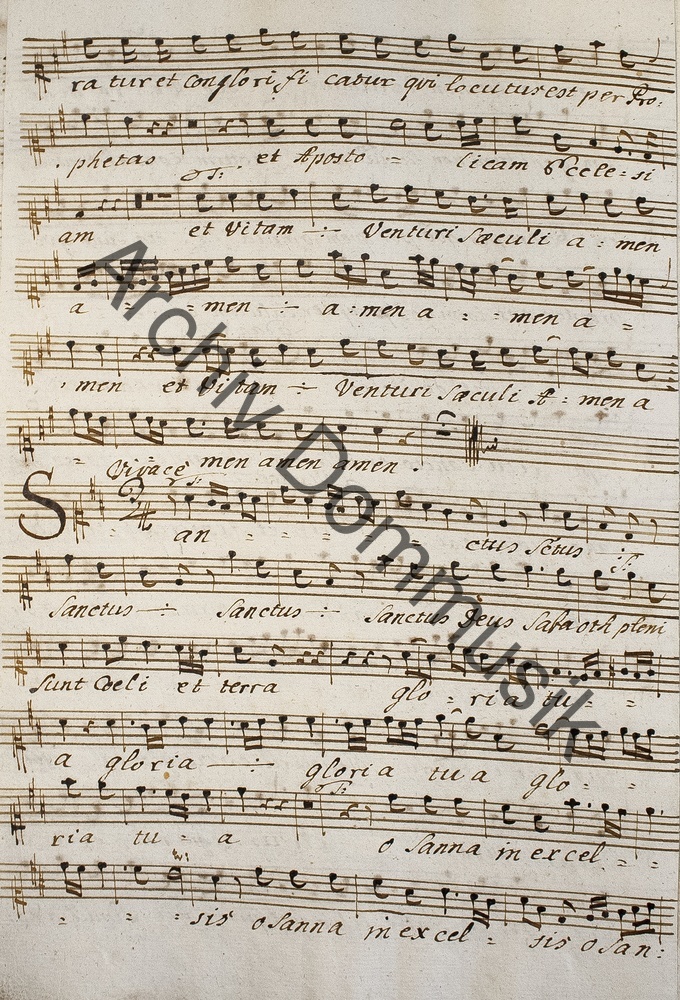 ra tur et Conglorifi catur qui locutus est per Pro:
phetas et Aposto = licam Eccle=si
T:
am et Vitam -:- Venturi Sæculi a : men
a = = men -:- a:men a = men a =
, men et Vitam -:- Venturi Sæculi A = men a
= men amen amen .
Vivace
T:
S an = = = = = ctus Sctus -:-
T:
Sanctus -:- Sanctus -:- Sanctus Deus Sabaoth pleni
Sunt Coeli et terra glo = ria tu = =
a gloria -:- gloria tu a glo = =
T:
ria tu = a o Sanna in excel = =
= = = sis o Sanna in excel = sis o San:
Archiv Dommusik